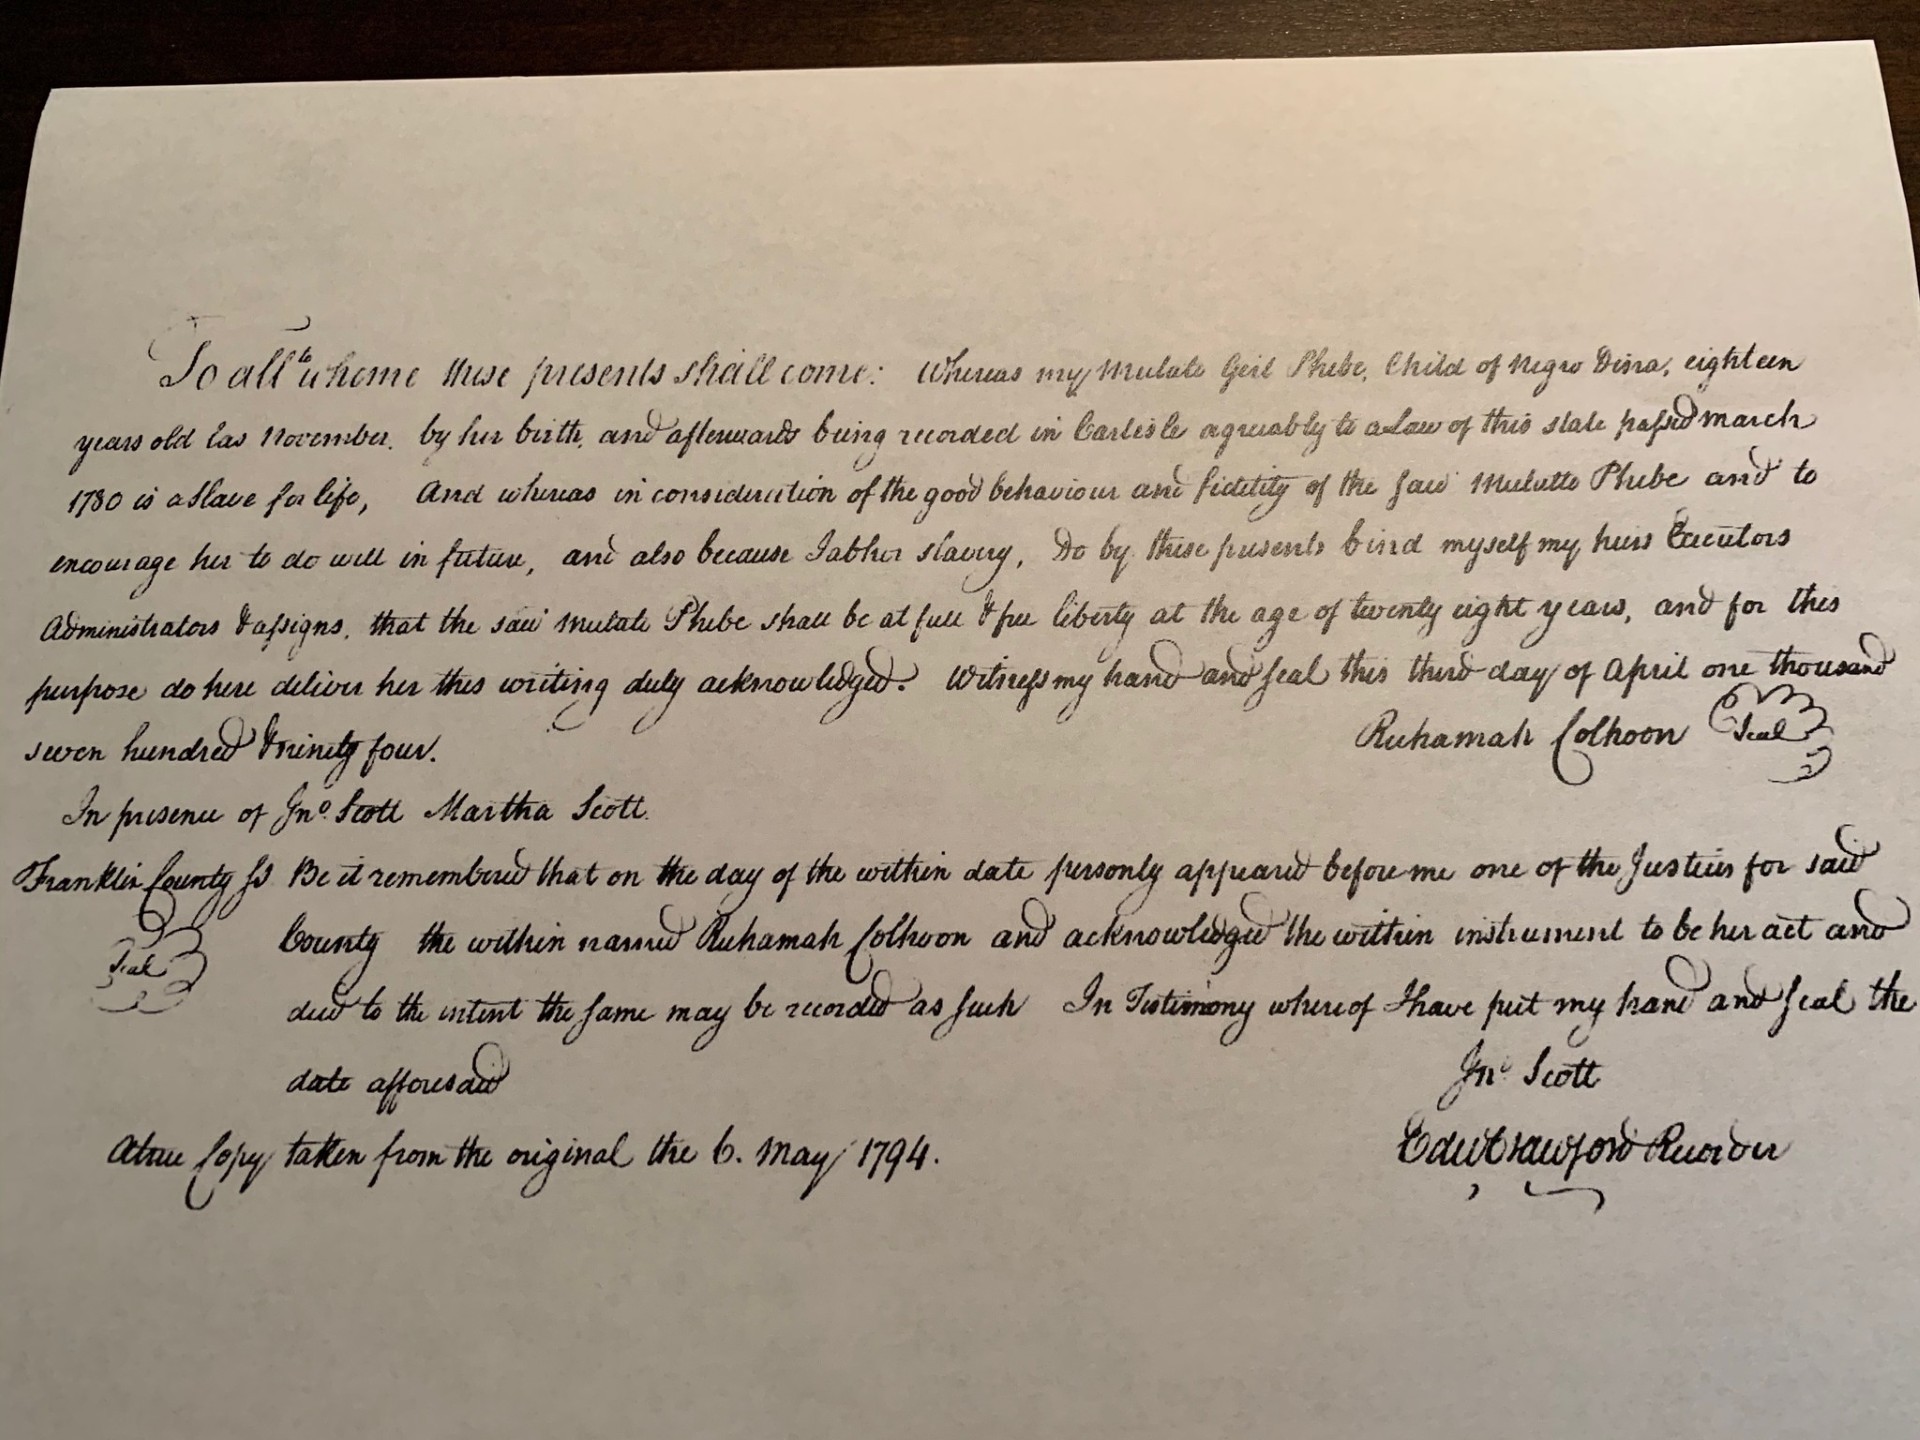 To all to whome these presents shall come: Whereas my Mulato Geil Phebe, Child of Negro Dina, eighteen
years old las November. by her birth, and afterwards being recorded in Carlisle agreably to a Law of this state passed march
1780 is a slave for life, And whereas in consideration of the good behaviour and fidelity of the said Mulatto Phebe and to
encourage her to do well in future, and also because I abhor slavery, Do by these presents bind myself my heirs Executors
Administrators & assigns, that the said Mulato Phebe shall be at full & free liberty at the age of twenty eight years, and for this
purpose do here deliver her this writing duly acknowledged. Witness my hand and seal this third day of April one thousand
seven hundred & ninety four. Ruhamah Colhoon Seal
In presence of Jno. Scott Martha Scott.
Franklin County Ss Be it remembered that on the day of the within date personly appeared before me one of the Justices for said
Seal County the within named Ruhamah Colhoon and acknowledged the within instrument to be her act and
deed to the intent the same may be recorded as such In Testimony whereof I have put my hand and seal the
date afforesaid Jno Scott
A true Copy taken from the original the 6. May 1794. Edw Crawford Recorder